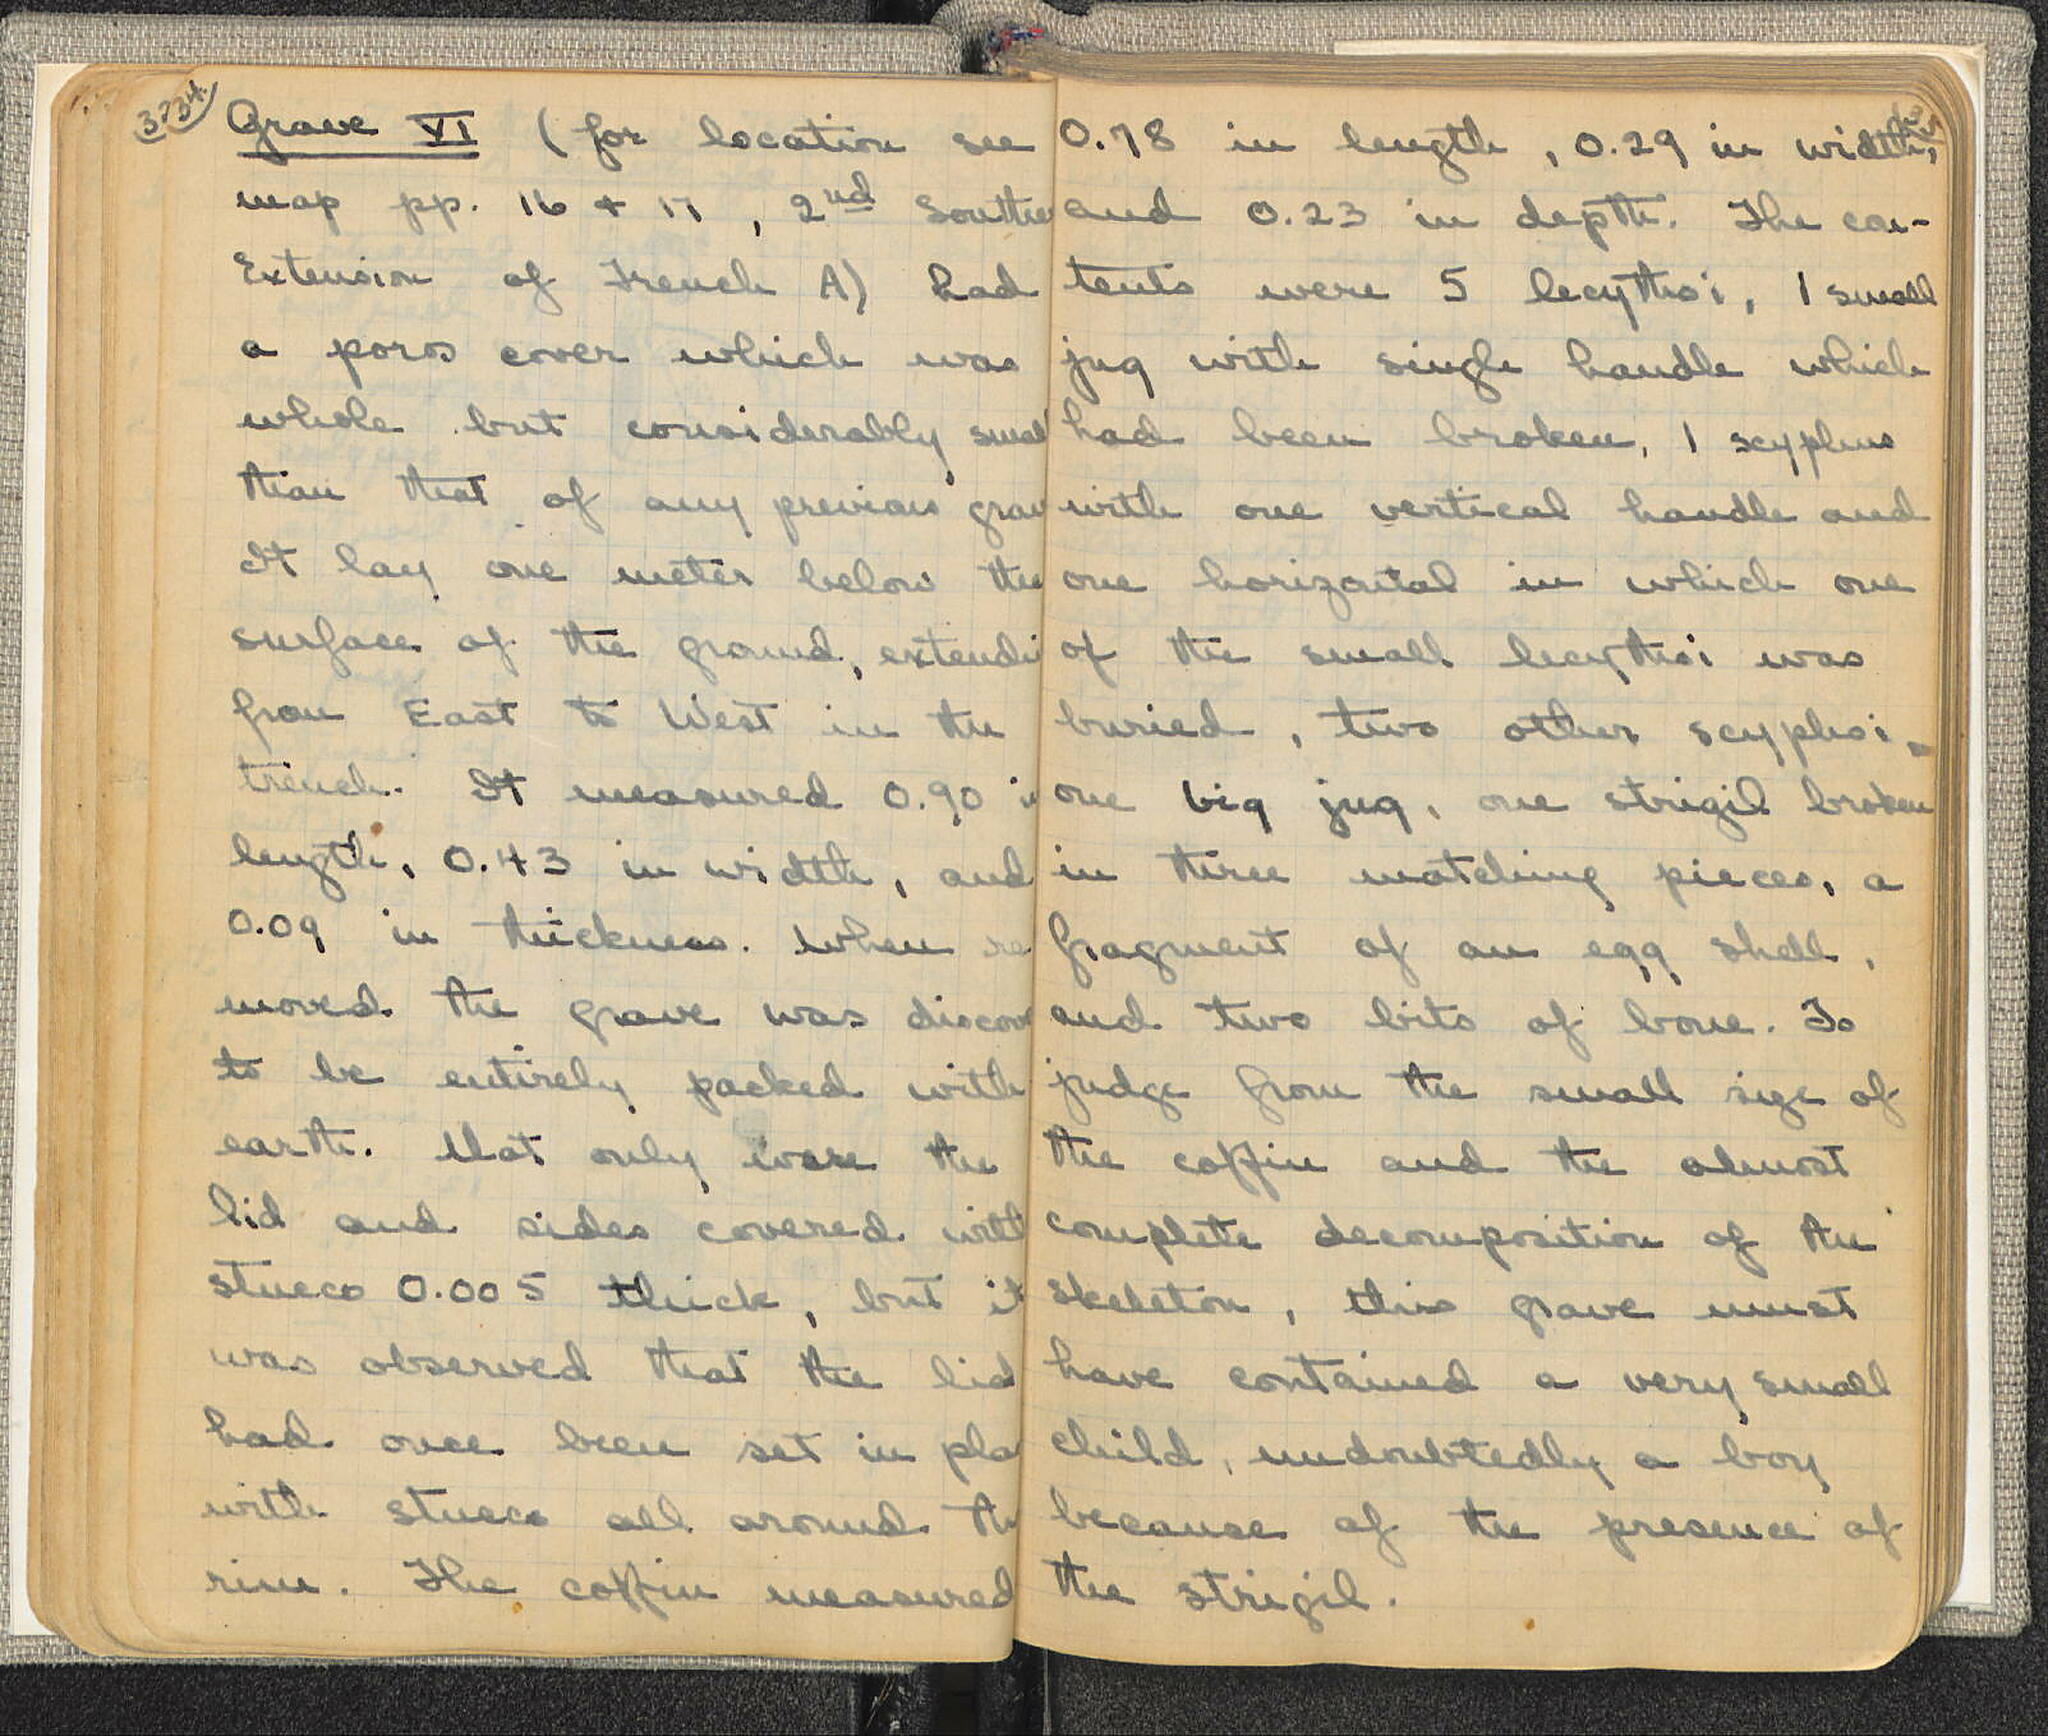 34
Grave VI (for location see
map pp. 16 + 17, 2nd Southe
Extension of Trench A) had
a poros cover which was
whole but considerably smal
than that of any previous grav
It lay one meter below the
surface of the ground, extendi
from East to West in the
trench. It measured 0.90 i
length, 0.43 in width, and
0.09 in thickness. When re
moved the grave was discov
to be entirely packed with
earth. Not only were the
lid and sides covered with
stucco 0.005 thick, but it
was observed that the lid
had once been set in pla
with stucco all around th
rim. The coffin measured
0.78 in length, 0.29 in width,
and 0.23 in depth. The con-
tents were 5 lecythoi, 1 small
jug with single handle which
had been broken, 1 scyphus
with one vertical handle and
one horizontal in which one
of the small lecythoi was
buried, two other scyphoi,
one big jug, one strigil broken
in three matching pieces, a
fragment of an egg shell,
and two bits of bone. To
judge from the small size of
the coffin and the almost
complete decomposition of the
skeleton, this grave must
have contained a very small
child, undoubtedly a boy
because of the presence of
the strigil.